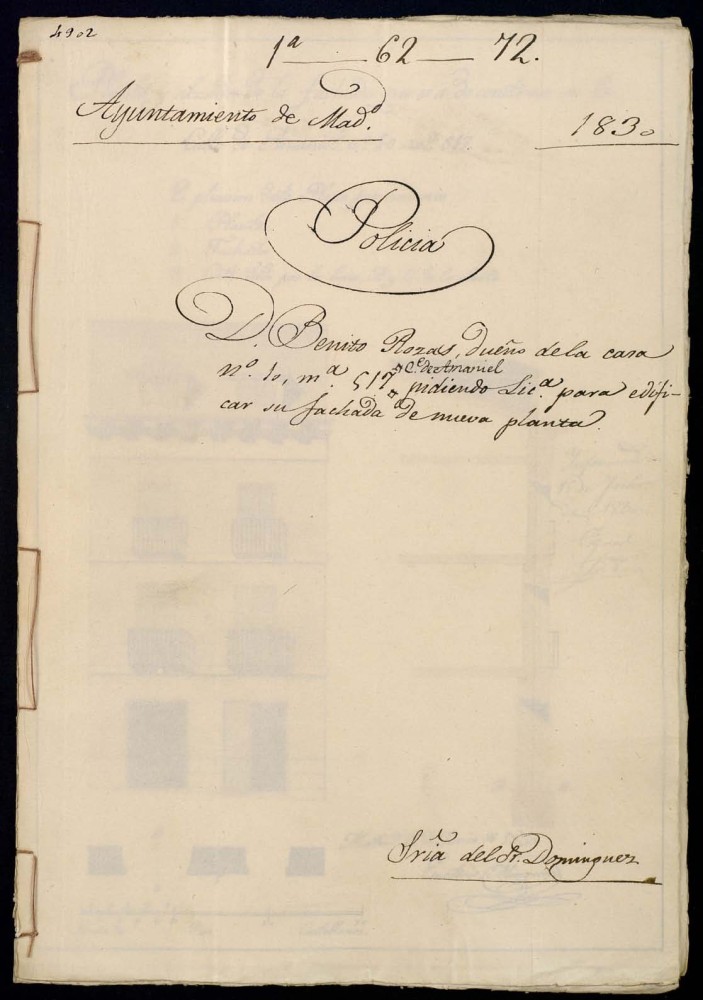 4902
1ª — 62 — 72.
Ayuntamiento de Madᵈ.
1830
Policia
D. Benito Rozas, dueño dela casa
nº. 10, mª. 517, Cᵉ. de Amaniel pidiendo Licª. para edifi-
car su fachada de nueva planta.
Sria del Sr. Dominguez